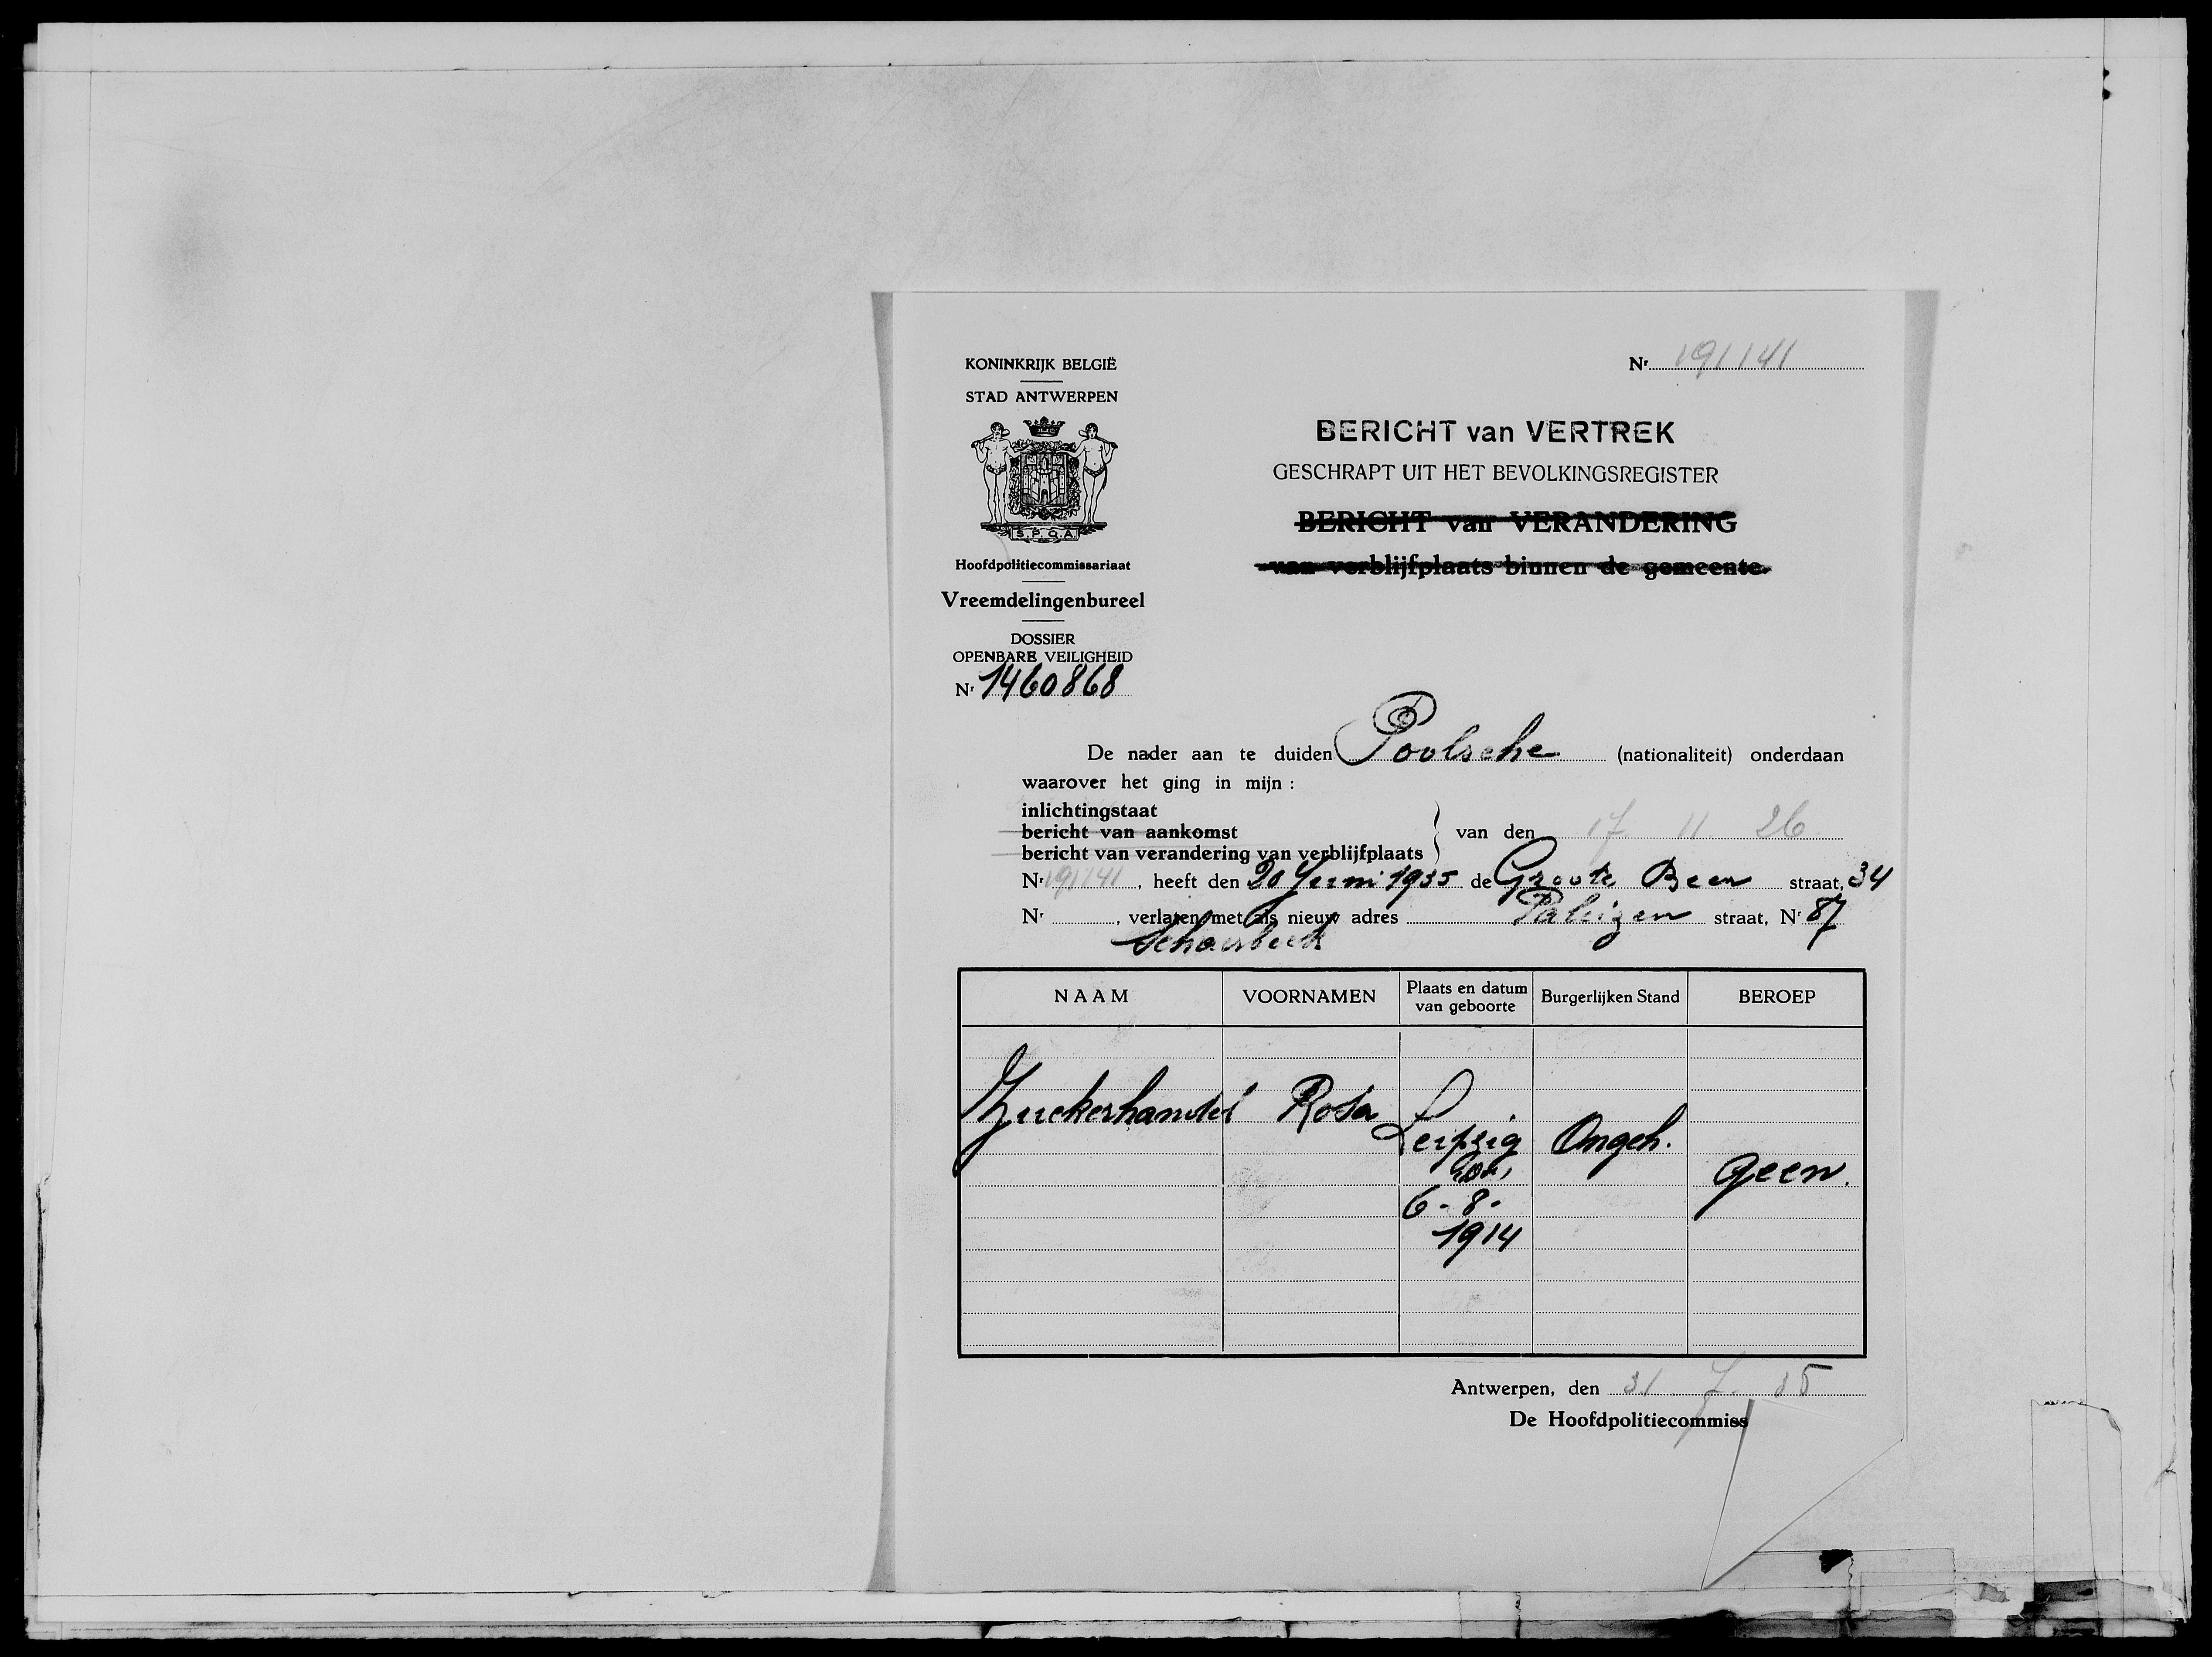 KONINKRIJK BELGIË
STAD ANTWERPEN
S.P.Q.A.
Hoofdpolitiecommissariaat
Vreemdelingenbureel
DOSSIER
OPENBARE VEILIGHEID
Nr 1460868
Nr 191141
BERICHT van VERTREK
GESCHRAPT UIT HET BEVOLKINGSREGISTER
BERICHT van VERANDERING
van verblijfplaats binnen de gemeente.
De nader aan te duiden Poolsche (nationaliteit) onderdaan
waarover het ging in mijn :
inlichtingstaat
bericht van aankomst } van den 17 11 26
bericht van verandering van verblijfplaats
Nr 191141, heeft den 20 Juni 1935 de Groote Beer straat, 34
Nr , verlaten met als nieuw adres Paleizen straat, Nr 87
Schaerbeek
NAAM VOORNAMEN Plaats en datum van geboorte Burgerlijken Stand BEROEP
Zuckerhandel Rosa Leipzig Ongeh. geen.
6-8-
1914
Antwerpen, den 31 7. 35
De Hoofdpolitiecommiss